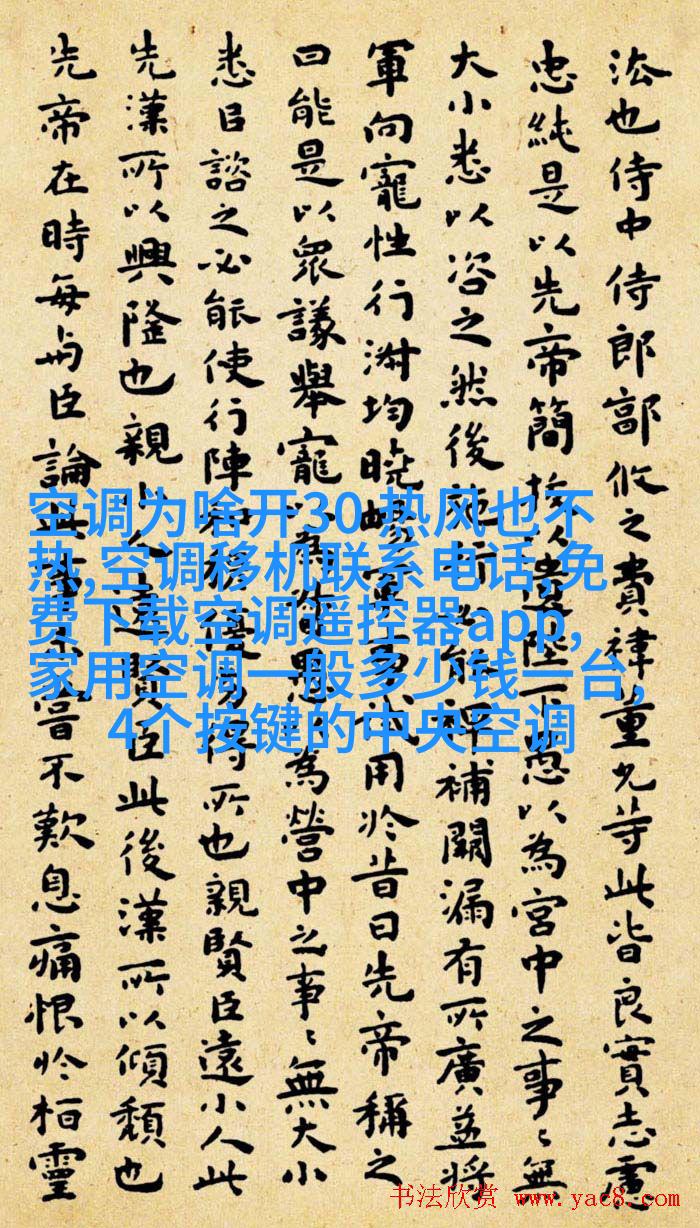 法也侍中侍郎郭攸之費禕董允等此皆良實志慮
忠純是以先帝簡拔以遺陛下愚以為宮中之事〻無
大小悉以咨之然後施行必能裨補闕漏有所廣益將
軍向寵性行淑均曉暢軍事試用於昔日先帝稱之
曰能是以眾議舉寵以為督愚以為營中之事〻無大小
悉㠯諮之必能使行陣和穆優劣得所也親賢臣遠小人此
先漢所以興隆也親小人遠賢臣此後漢所以傾頹也
先帝在時每與臣論此事未嘗不歎息痛恨於桓靈
空调为啥开30 热风也不
热,空调移机联系电话,免
费下载空调遥控器app,
家用空调一般多少钱一台,
4个按键的中央空调
书法欣赏 www.yac8.com